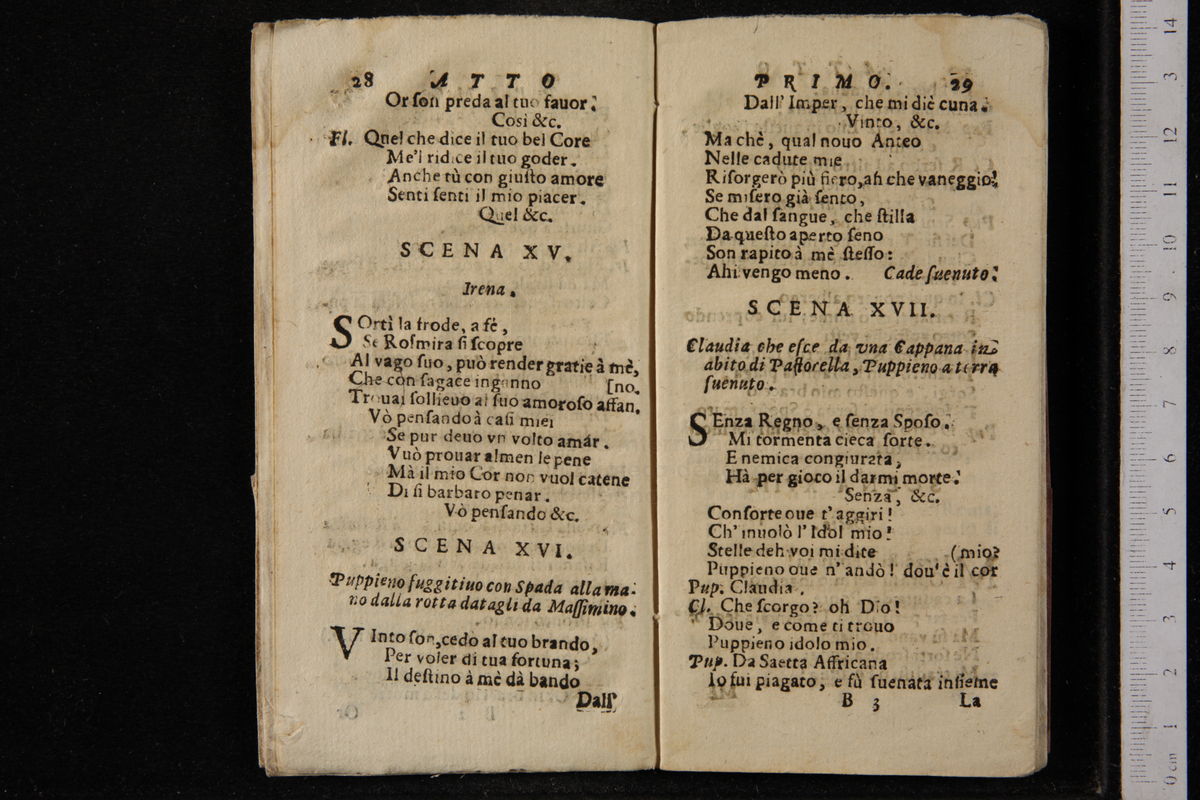 28 ATTO
Or son preda al tuo fauor.
Cosi &c.
Fl. Quel che dice il tuo bel Core
Me'l ridice il tuo goder.
Anche tù con giusto amore
Senti senti il mio piacer.
Quel &c.
SCENA XV.
Irena.
SOrtì la frode, a fè,
Se Rosmira si scopre
Al vago suo, può render gratie à mè,
Che con sagace ingenno [no.
Trouai sollieuo al suo amoroso affan.
Vò pensando à casi miei
Se pur deuo vn volto amar.
Vuò prouar almen le pene
Mà il mio Cor non vuol catene
Di si barbaro penar.
Vò pensando &c.
SCENA XVI.
Puppieno fuggitiuo con Spada alla ma-
no dalla rotta datagli da Massimino.
VInto son, cedo al tuo brando,
Per voler di tua fortuna;
Il destino à mè dà bando
Dall'
PRIMO. 29
Dall' Imper, che mi diè cuna.
Vinto, &c.
Ma chè, qual nouo Anteo
Nelle cadute mie
Risorgerò più fiero, ah che vaneggio!
Se misero già sento,
Che dal sangue, che stilla
Da questo aperto seno
Son rapito à mè stesso:
Ahi vengo meno. Cade suenuto.
SCENA XVII.
Claudia che esce da vna Cappana in
abito di Pastorella, Puppieno a terra
suenuto.
SEnza Regno, e senza Sposo.
Mi tormenta cieca sorte.
E nemica congiurata,
Hà per gioco il darmi morte.
Senza, &c.
Consorte oue t'aggiri!
Ch'inuolò l'Idol mio!
Stelle deh voi mi dite (mio?
Puppieno oue n'andò! dou'è il cor
Pup. Claudia.
Cl. Che scorgo? oh Dio!
Doue, e come ti trouo
Puppieno idolo mio.
Pup. Da Saetta Affricana
Io fui piagato, e fù suenata insieme
B 3 La